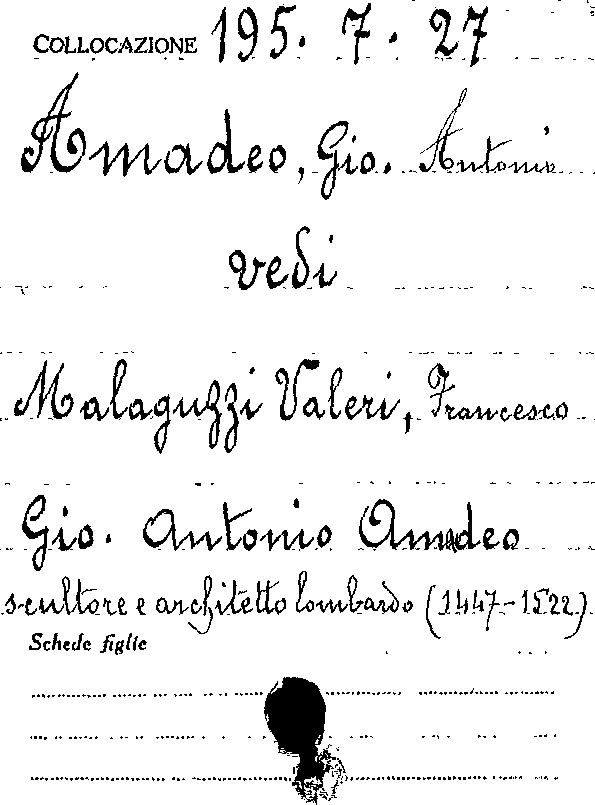 COLLOCAZIONE 195. 7. 27
Amadeo, Gio. Antonio
vedi
Malaguzzi Valeri, Francesco
Gio. Antonio Amadeo
scultore e architetto lombardo (1447-1522)
Schede figlie